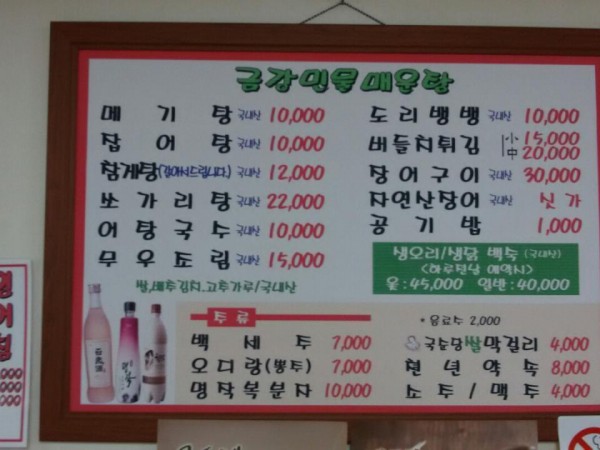 금강민물매운탕
메기탕 국내산 10,000
잡어탕 국내산 10,000
참게탕(갈아서드립니다) 국내산 12,000
쏘가리탕 국내산 22,000
어탕국수 국내산 10,000
무우조림 국내산 15,000
쌀,배추김치,고추가루/국내산
도리뱅뱅 국내산 10,000
버들치튀김 小 15,000
中 20,000
장어구이 국내산 30,000
자연산장어 국내산 싯가
공기밥 1,000
생오리/생닭 백숙 (국내산)
<하루전날 예약시>
옻:45,000 일반:40,000
주류
* 음료수 2,000
백세주 7,000
오디랑(뽕주) 7,000
명작복분자 10,000
국순당쌀막걸리 4,000
천년약속 8,000
소주/맥주 4,000